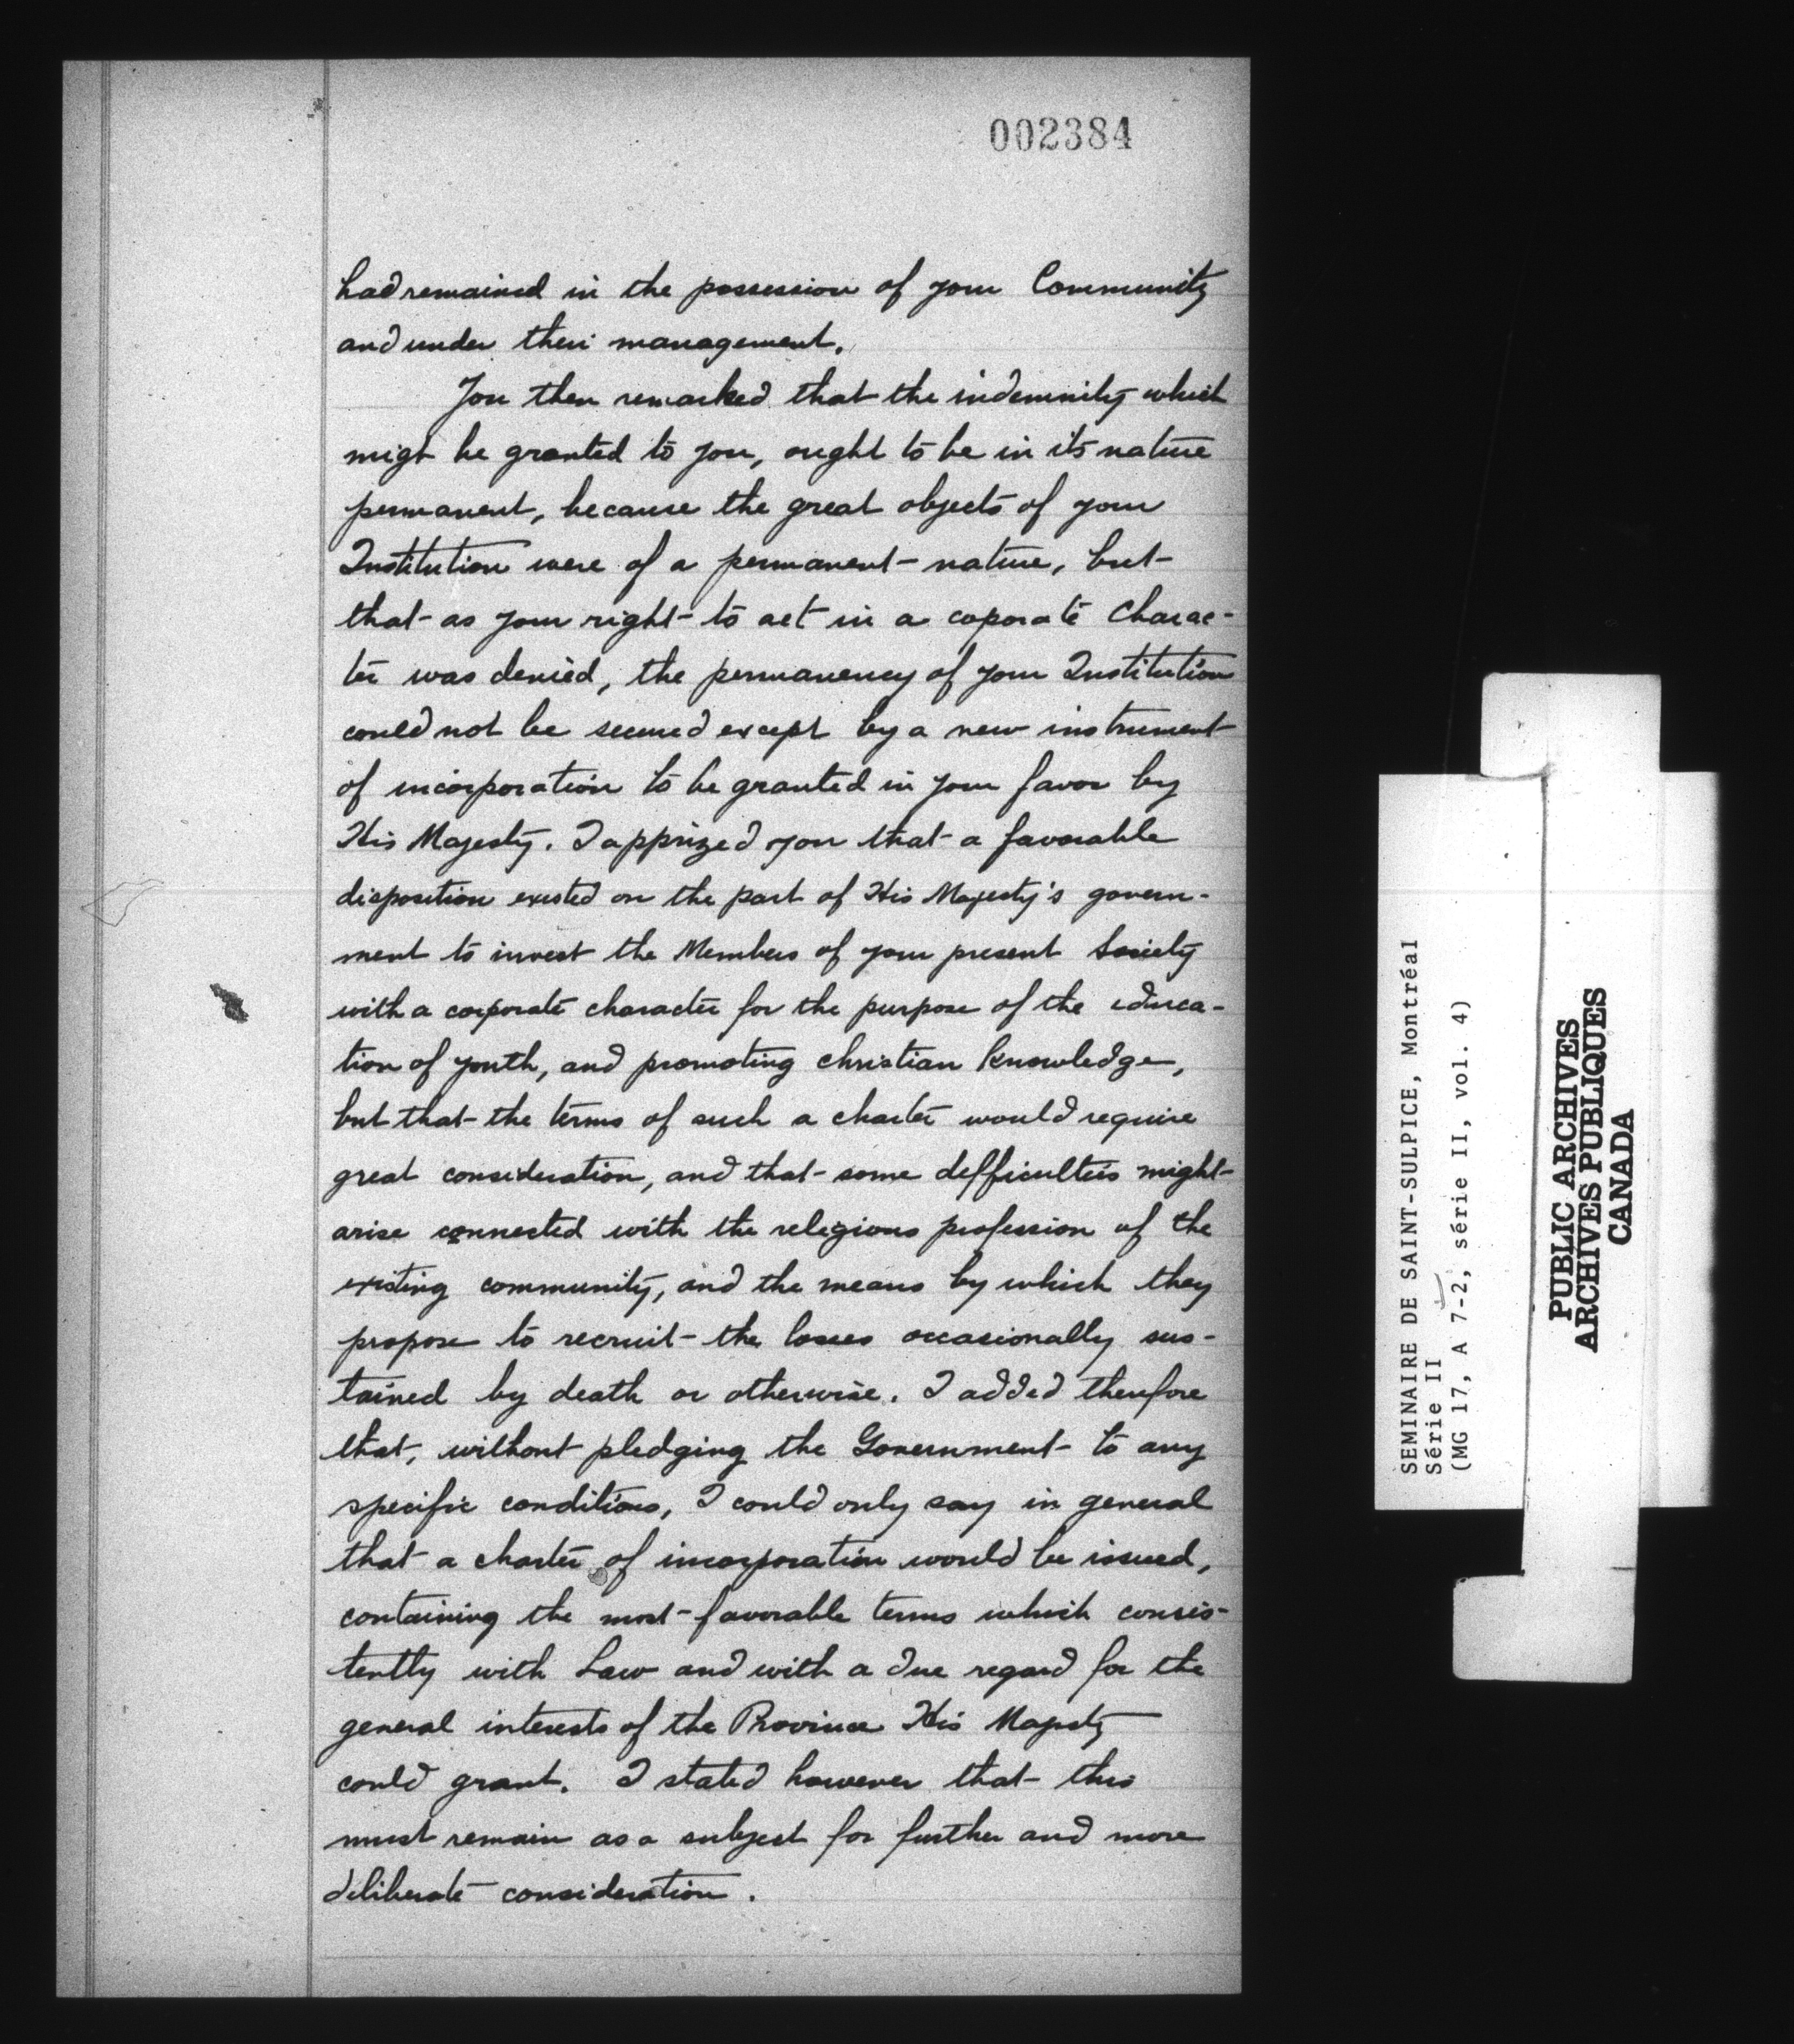 002384
had remained in the possession of your Community
and under their management.
You then remarked that the indemnity which
migt be granted to you, ought to be in its nature
permanent, because the great objects of your
Institution were of a permanent nature, but
that as your right to act in a coporate charac-
ter was denied, the permanency of your Institution
could not be secured except by a new instrument
of incorporation to be granted in your favor by
His Majesty. I apprized you that a favorable
disposition existed on the part of His Majesty's govern-
ment to invest the Members of your present Society
with a corporate character for the purpose of the educa-
tion of youth, and promoting christian knowledge,
but that the terms of such a charter would require
great consideration, and that some defficulties might
arise connected with the religious profession of the
existing community, and the means by which they
propose to recruit the losses occasionally sus-
tained by death or otherwise. I added therefore
that, without pledging the Government to any
specific conditions, I could only say in general
that a charter of incorporation would be issued,
containing the most favorable terms which consis-
tently with Law and with a due regard for the
general interests of the Province His Majesty
could grant. I stated however that this
must remain as a subject for further and more
deliberate consideration.
SEMINAIRE DE SAINT-SULPICE, Montréal
Série II
(MG 17, A 7-2, série II, vol. 4)
PUBLIC ARCHIVES
ARCHIVES PUBLIQUES
CANADA